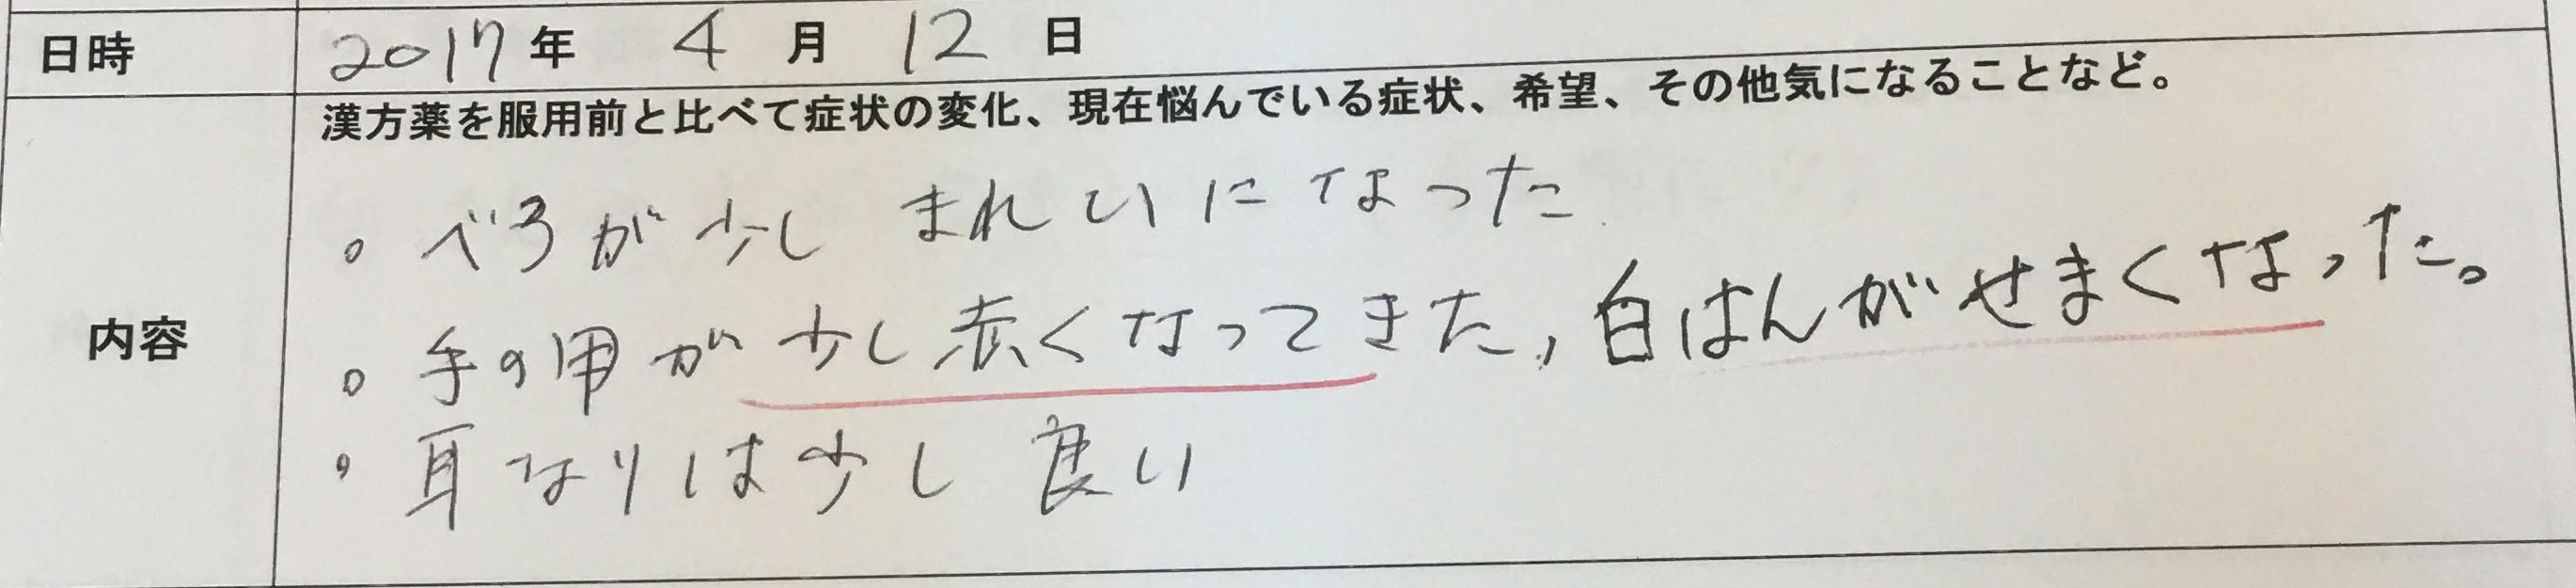 日時 2017年 4月 12日
漢方薬を服用前と比べて症状の変化、現在悩んでいる症状、希望、その他気になることなど。
内容
。べろが少し きれいになった
。手の甲が少し赤くなってきた、白はんがせまくなった。
。耳なりは少し良い